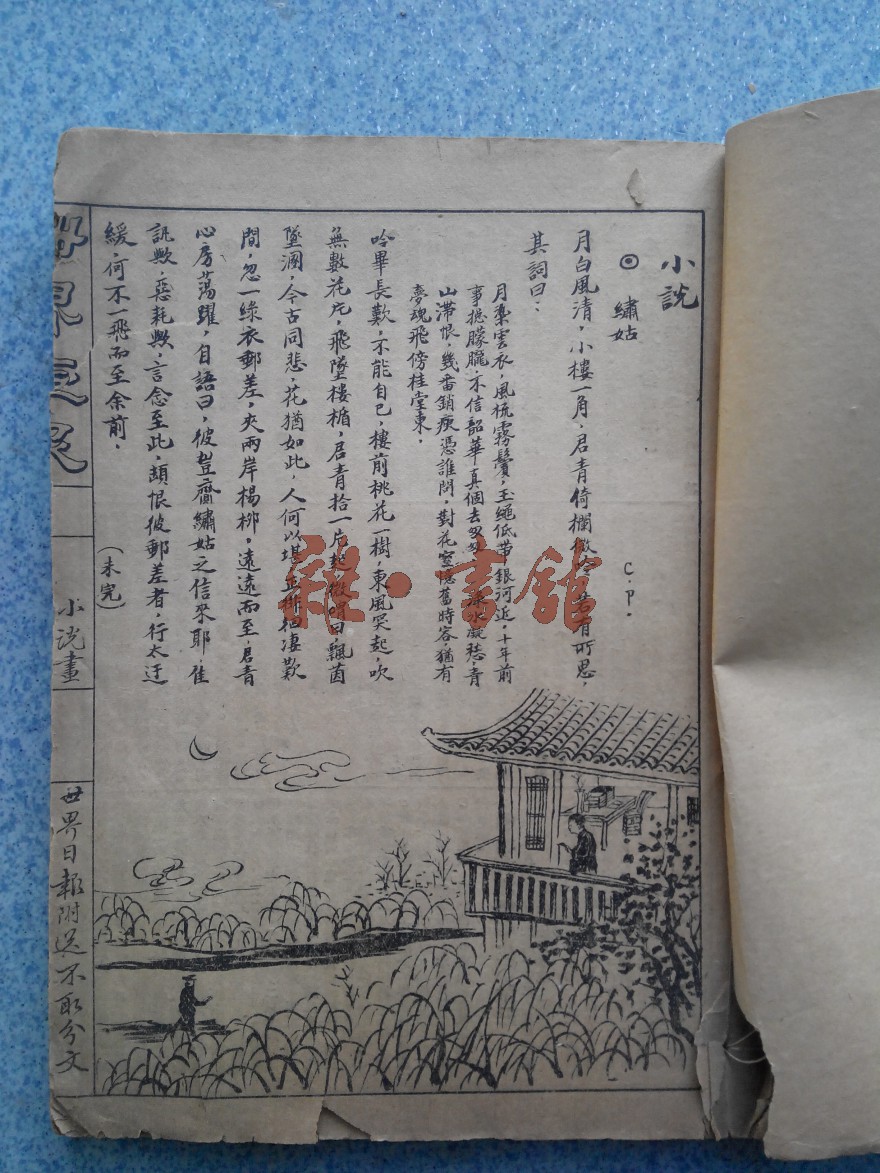 小説
◎ 繡姑 C.P.
月白風清，小樓一角，君青倚欄微吟，若有所思，
其詞曰：
月染雲衣，風梳霧鬢，玉繩低帶銀河近，十年前
事搃朦朧，不信韶華真個去匆匆 水凝愁，青
山滯恨，幾番銷瘦憑誰問，對花窗憶舊時容猶有
夢魂飛傍桂堂東，
吟畢長歎，不能自已，樓前桃花一樹，東風笑起，吹
無數花片，飛墜樓楯，君青拾一片起，微喟曰，飄茵
墜溷，今古同悲，花猶如此，人何以堪，正徘徊淒歎
間，忽一綠衣郵差，夾兩岸楊柳，遠遠而至，君青
心房蕩躍，自語曰，彼豈齎繡姑之信來耶，佳
訊歟，惡耗歟，言念至此，頗恨彼郵差者，行太迂
緩，何不一飛而至余前，
(未完)
小説畫
世界日報附送不取分文
雜·書館